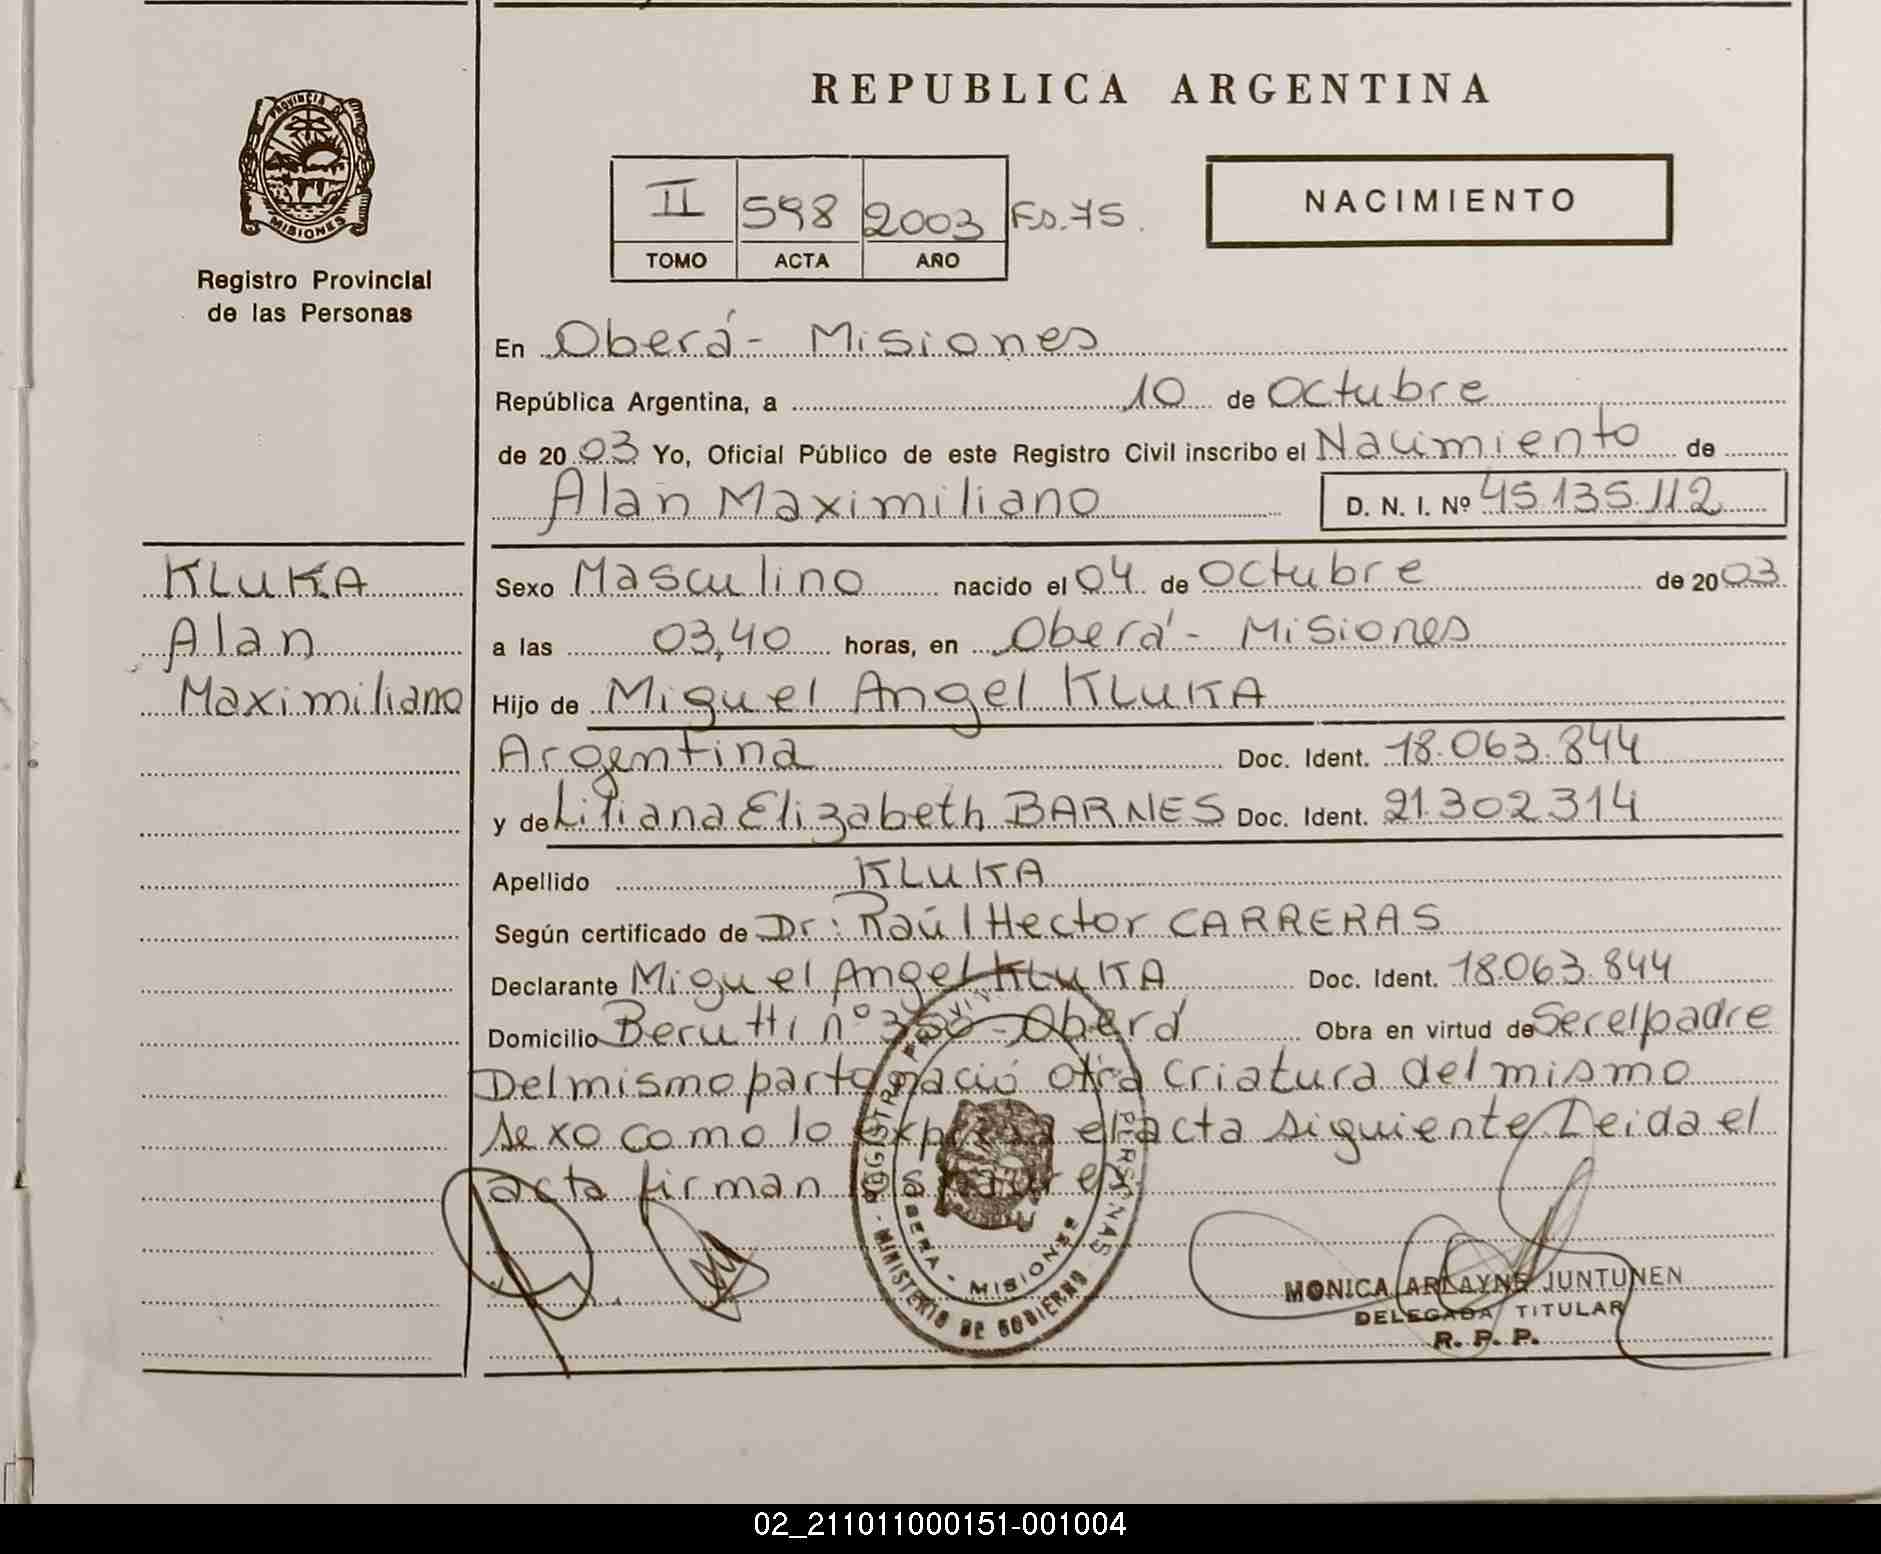 REPUBLICA ARGENTINA
PROVINCIA DE
MISIONES
Registro Provincial
de las Personas
II 598 2003 Fs. 75.
TOMO ACTA AÑO
NACIMIENTO
En Oberá - Misiones
República Argentina, a 10 de Octubre
de 2003 Yo, Oficial Público de este Registro Civil inscribo el Nacimiento de
Alan Maximiliano D. N. I. Nº 45.135.112
KLUKA
Alan
Maximiliano
Sexo Masculino nacido el 04 de Octubre de 2003
a las 03,40 horas, en Oberá - Misiones
Hijo de Miguel Angel KLUKA
Argentina Doc. Ident. 18.063.844
y de Liliana Elizabeth BARNES Doc. Ident. 21.302314
Apellido KLUKA
Según certificado de Dr: Raúl Hector CARRERAS
Declarante Miguel Angel KLUKA Doc. Ident. 18.063.844
Domicilio Berutti nº - Oberá Obra en virtud de Ser el padre
Del mismo parto nació otra criatura del mismo
sexo como lo expresa el acta siguiente Leida el
acta firman los padres
REGISTRO PROVINCIAL PERSONAS
OBERA - MISIONES
MINISTERIO DE GOBIERNO
MONICA ARLAYNE JUNTUNEN
DELEGADA TITULAR
R. P. P.
02_211011000151-001004